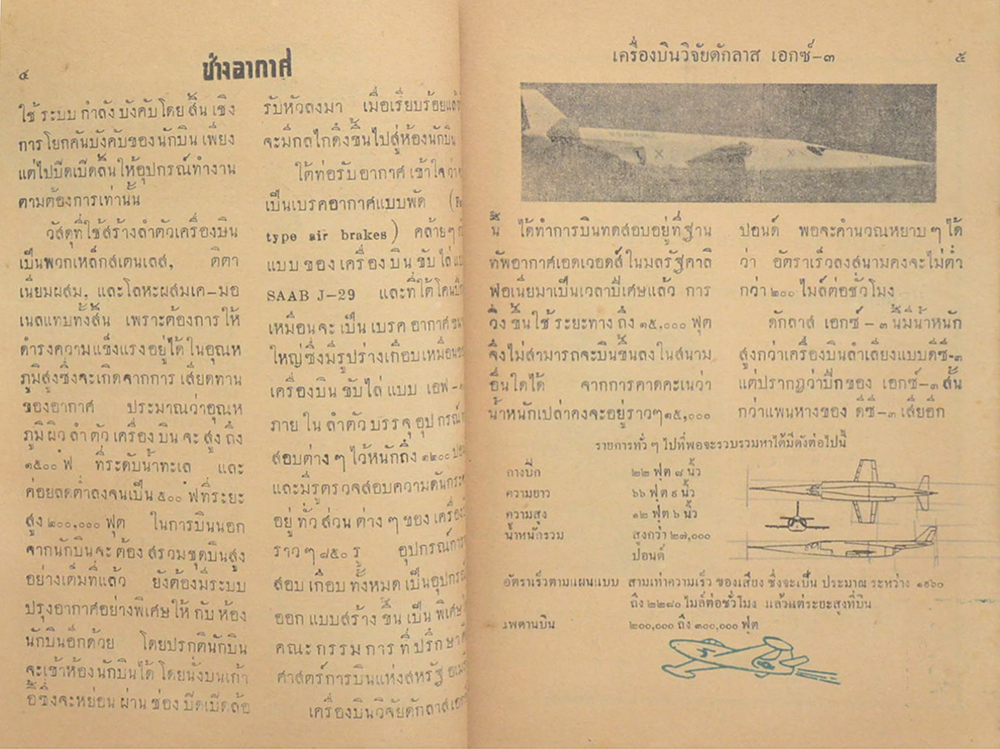 ๔
ช่างอากาศ
ใช้ ระบบ กำลัง บังคับ โดย สิ้น เชิง
การโยกคันบังคับของนักบิน เพียง
แต่ไปปิดเปิดลิ้นให้อุปกรณ์ทำงาน
ตามต้องการเท่านั้น
วัสดุที่ใช้สร้างลำตัวเครื่องบิน
เป็นพวกเหล็กสเตนเลส, ติตา
เนียมผสม, และโลหะผสมเค-มอ
เนลแทบทั้งสิ้น เพราะต้องการให้
ดำรงความแข็งแรงอยู่ได้ในอุณห
ภูมิสูงซึ่งจะเกิดจากการ เสียดทาน
ของอากาศ ประมาณว่าอุณห
ภูมิ ผิว ลำ ตัว เครื่อง บิน จะ สูง ถึง
๑๕๐๐ ํฟ ที่ระดับน้ำทะเล และ
ค่อยลดต่ำลงจนเป็น ๕๐๐ ํฟที่ระยะ
สูง ๒๐๐,๐๐๐ ฟุต ในการบินนอก
จากนักบินจะ ต้อง สรวมชุดบินสูง
อย่างเต็มที่แล้ว ยังต้องมีระบบ
ปรุงอากาศอย่างพิเศษให้ กับ ห้อง
นักบินอีกด้วย โดยปรกตินักบิน
จะเข้าห้องนักบินได้ โดยนั่งบนเก้า
อี้ซึ่งจะหย่อน ผ่าน ช่อง ปิดเปิดล้อ
รับหัวลงมา เมื่อเรียบร้อยแล้ว
จะมีกลไกดึงขึ้นไปสู่ห้องนักบิน
ใต้ท่อรับอากาศ เข้าใจว่า
เป็นเบรคอากาศแบบพัด
type air brakes) คล้ายๆ
แบบ ของ เครื่อง บิน ขับ ไล่
SAAB J-29 และที่ใต้โคน
เหมือนจะ เป็น เบรค อากาศ
ใหญ่ซึ่งมีรูปร่างเกือบเหมือน
เครื่องบิน ขับไล่ แบบ เอฟ-
ภาย ใน ลำตัว บรรจุ อุป กรณ์
สอบต่าง ๆ ไว้หนักถึง ๑๒๐๐
และมีรูตรวจสอบความดัน
อยู่ ทั่ว ส่วน ต่าง ๆ ของ เครื่อง
ราว ๆ ๘๕๐ รู อุปกรณ์การ
สอบ เกือบ ทั้งหมด เป็นอุปกรณ์
ออก แบบสร้าง ขึ้น เป็น พิเศษ
คณะ กรรม การ ที่ ปรึกษา
ศาสตร์การบินแห่งสหรัฐ
เครื่องบินวิจัยดักลาส
เครื่องบินวิจัยดักลาส เอกซ์-๓
๕
นี้ ได้ทำการบินทดสอบอยู่ที่ฐาน
ทัพอากาศเอดเวอดส์ในมลรัฐคาลิ
ฟอเนียมาเป็นเวลาปีเศษแล้ว การ
วิ่ง ขึ้นใช้ ระยะทาง ถึง ๑๕,๐๐๐ ฟุต
จึงไม่สามารถจะบินขึ้นลงในสนาม
อื่นใดได้ จากการคาดคะเนว่า
น้ำหนักเปล่าคงจะอยู่ราวๆ ๑๕,๐๐๐
ปอนด์ พอจะคำนวณหยาบ ๆ ได้
ว่า อัตราเร็วลงสนามคงจะไม่ต่ำ
กว่า ๒๐๐ ไมล์ต่อชั่วโมง
ดักลาส เอกซ์ - ๓ นี้มีน้ำหนัก
สูงกว่าเครื่องบินลำเลียงแบบดีซี-๓
แต่ปรากฏว่าปีกของ เอกซ์-๓ สั้น
กว่าแพนหางของ ดีซี-๓ เสียอีก
รายการทั่ว ๆ ไปที่พอจะรวบรวมหาได้มีดังต่อไปนี้
กางปีก ๒๒ ฟุต ๘ นิ้ว
ความยาว ๖๖ ฟุต ๙ นิ้ว
ความสูง ๑๒ ฟุต ๖ นิ้ว
น้ำหนักรวม สูงกว่า ๒๗,๐๐๐
ปอนด์
อัตราเร็วตามแผนแบบ สามเท่าความเร็ว ของเสียง ซึ่งจะเป็น ประมาณ ระหว่าง ๑๙๖๐
ถึง ๒๒๘๐ ไมล์ต่อชั่วโมง แล้วแต่ระยะสูงที่บิน
เพดานบิน ๒๐๐,๐๐๐ ถึง ๓๐๐,๐๐๐ ฟุต